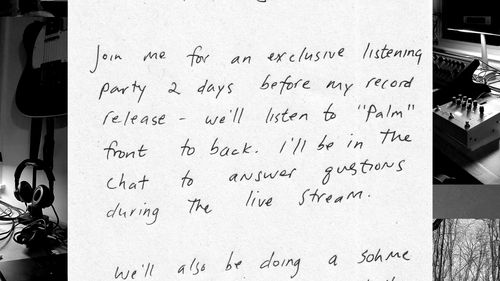 Join me for an exclusive listening
party 2 days before my record
release - we'll listen to "Palm"
front to back. I'll be in the
chat to answer questions
during the live stream.
we'll also be doing a sohme